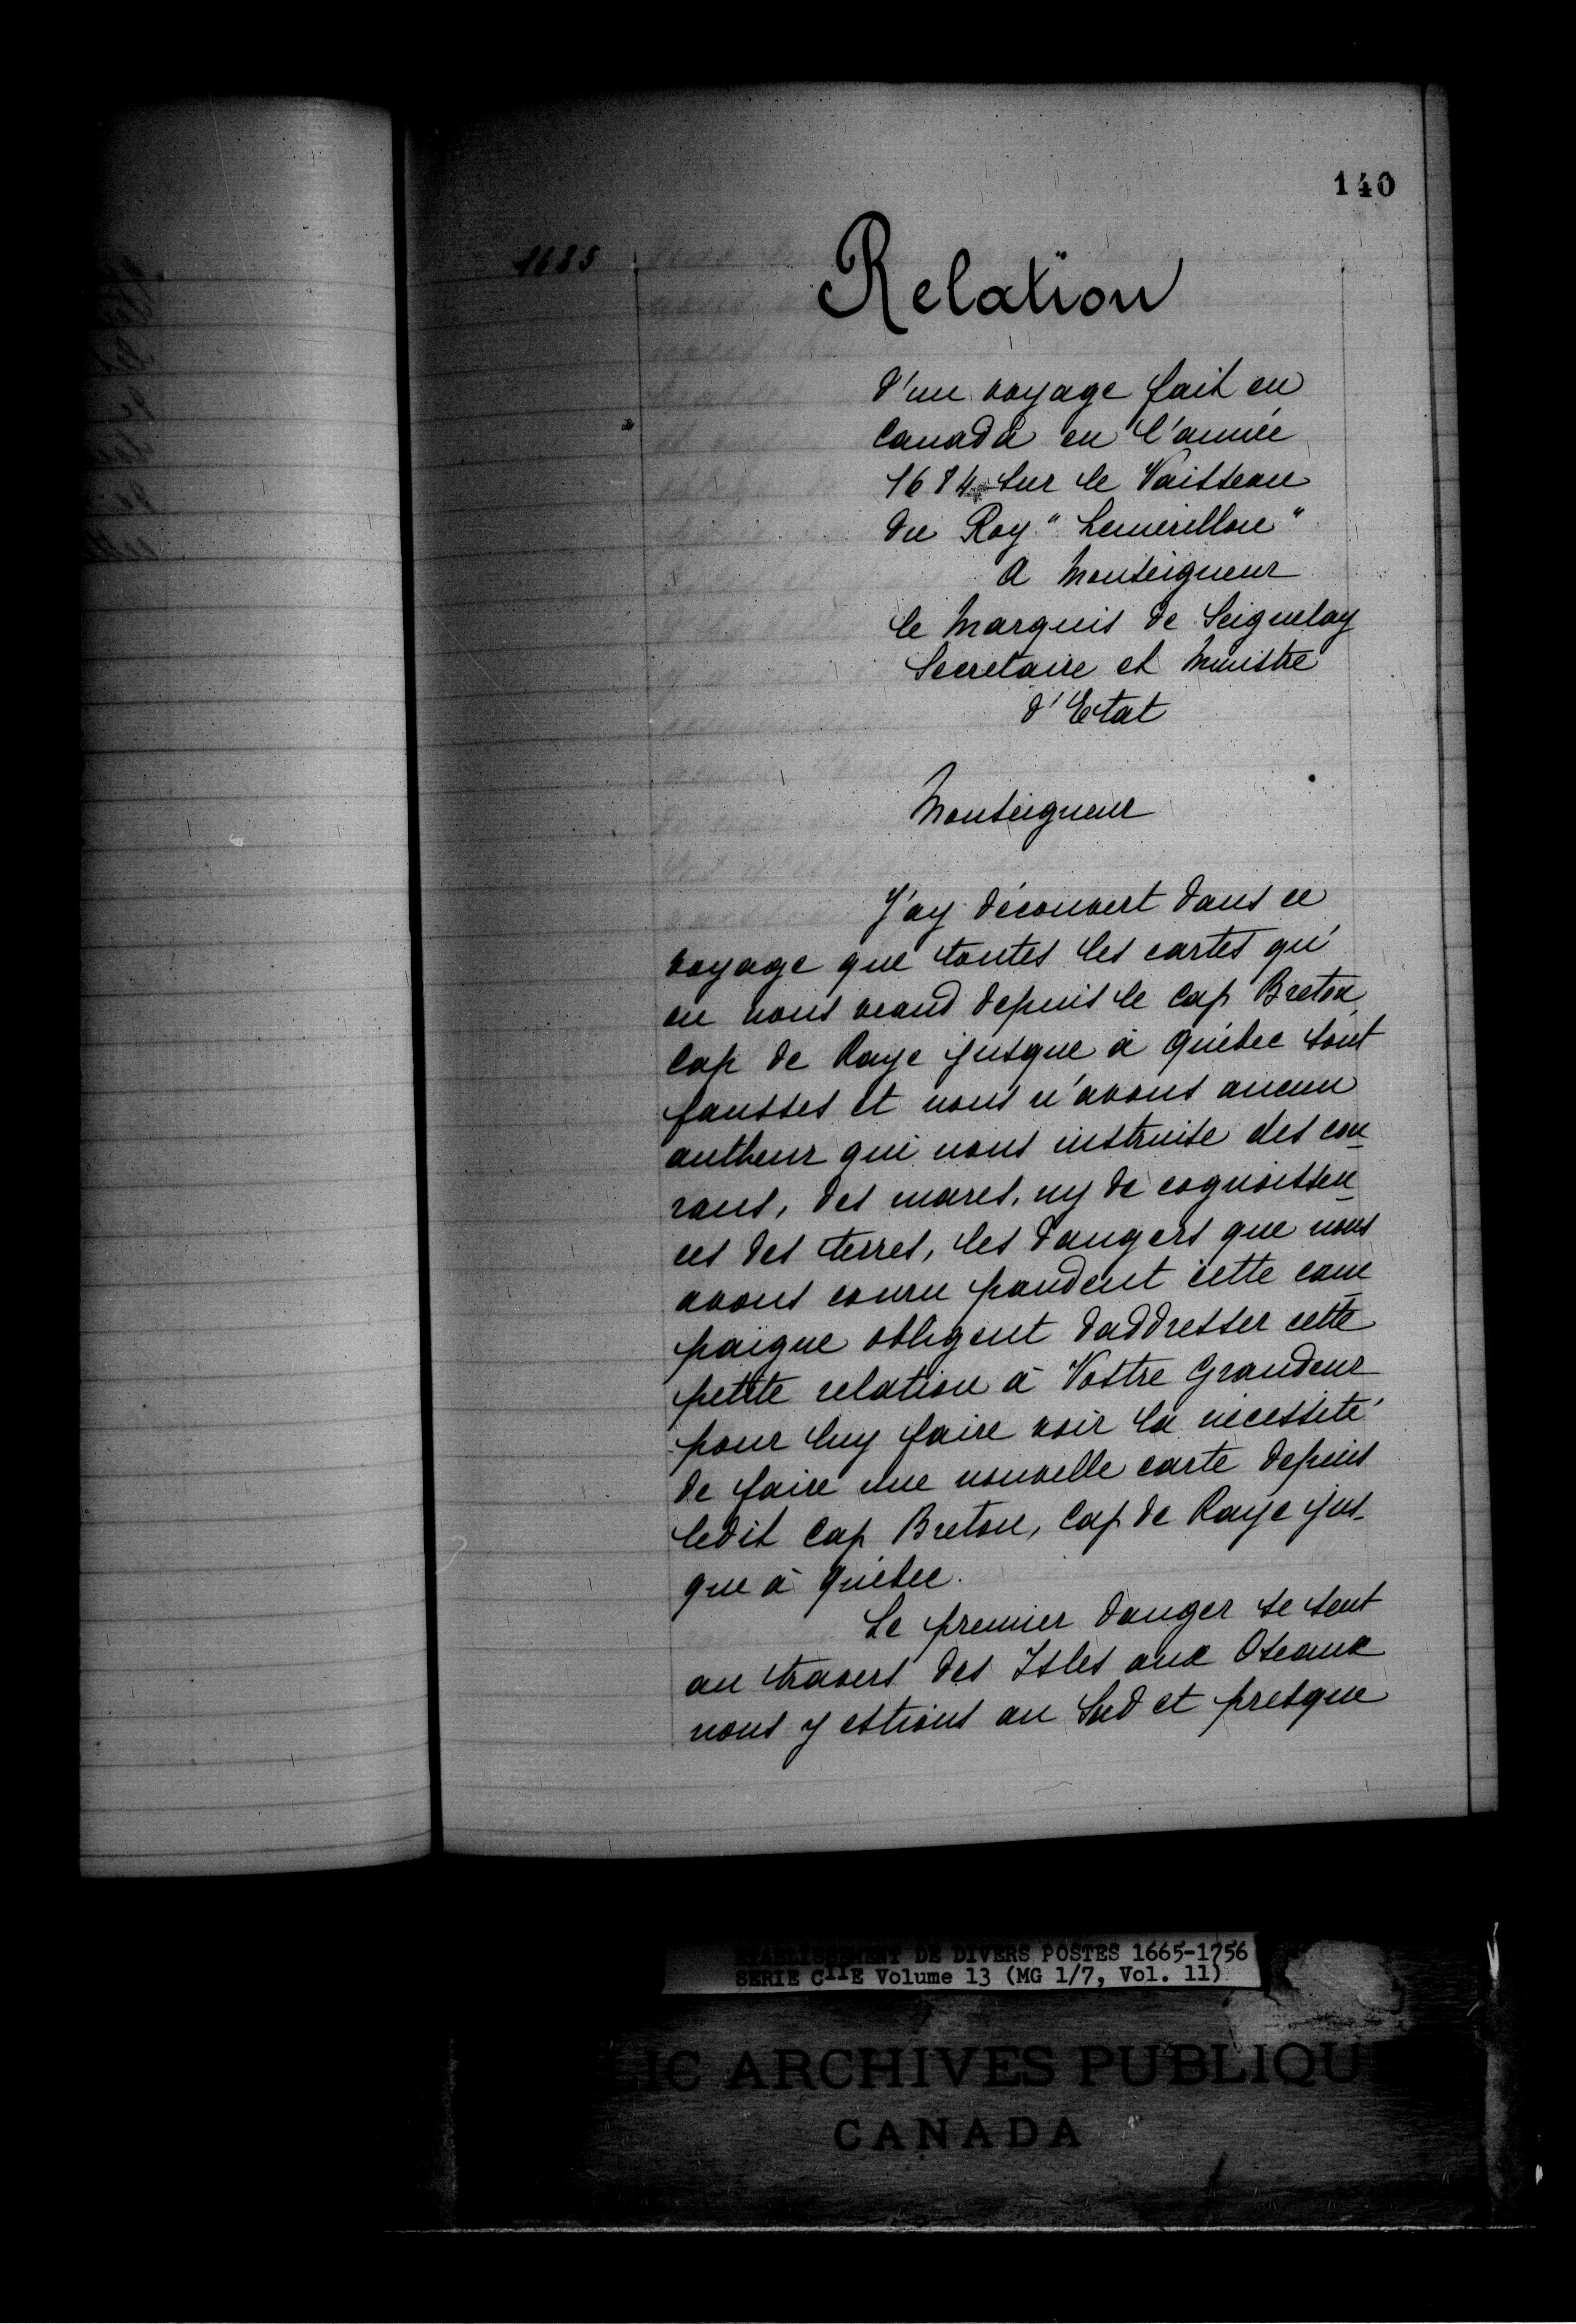 140
1685
Relation
d'un voyage fait en
Canada en l'année
1684 sur le Vaisseau
du Roy "Lemerillon"
A Monseigneur
le Marquis de Seignelay
Secretaire et Ministre
d'Etat
Monseigneur
J'ay découvert dans ce
voyage que toutes les cartes qu'
on nous vand depuis le Cap Breton
Cap de Raye jusque à Québec sont
fausses et nous n'avons aucun
autheur qui nous instruise des cou
rans, des marés, ny de cognoissen
ces des terres, les dangers que nous
avons couru pandent cette cam
paigne obligent daddresser cette
petite relation à Vostre Grandeur
pour luy faire voir la nécessité
de faire une nouvelle carte depuis
ledit Cap Breton, Cap de Raye jus-
que à Québec.
Le premier danger se sent
au travers des Isles aux Oseaux
nous y estions au Sud et presque
ETABLISSEMENT DE DIVERS POSTES 1665-1756
SERIE C11E Volume 13 (MG 1/7, Vol. 11)
LIC ARCHIVES PUBLIQU
CANADA